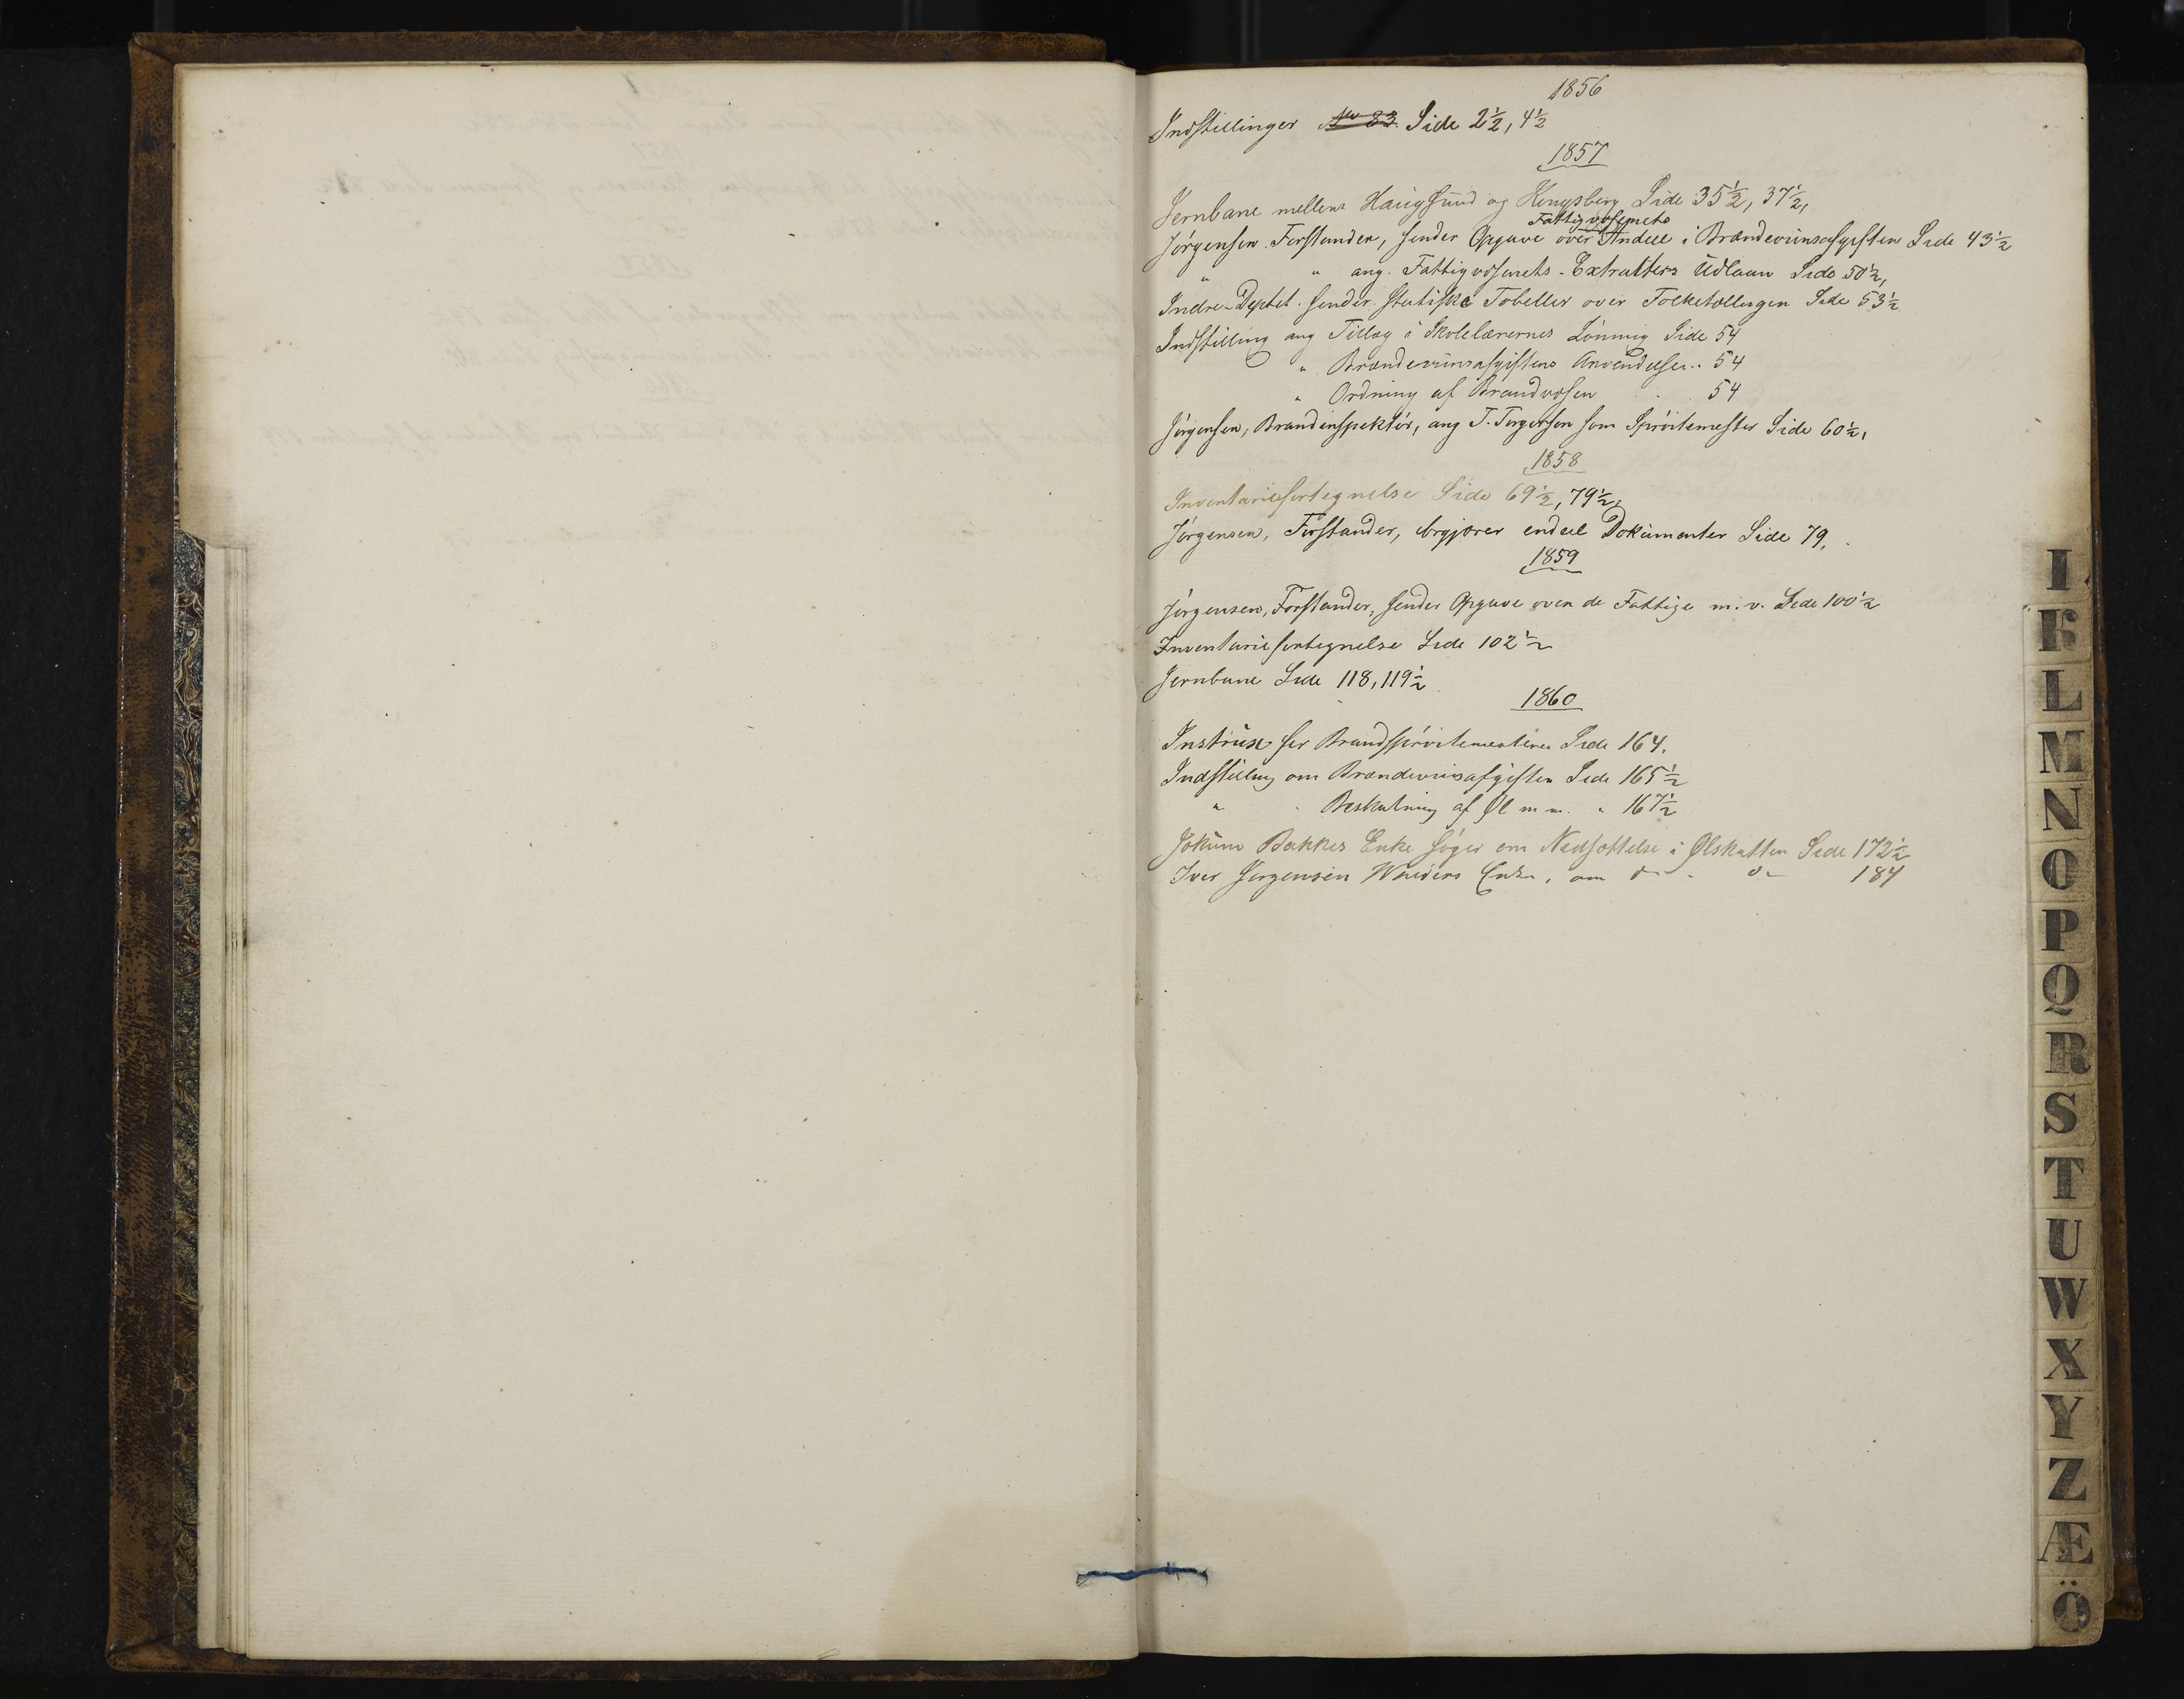 1856
Indstillinger No 83. Side 2½, 4½
1857
Jernbane mellem Haugsund og Kongsberg Side 35½, 37½,
Fattigvæsenets
Jörgensen Forstander, sender Opgave over Andeel i Brændeviinsafgiften Side 43½
" " ang. Fattigvæsenets Extraskatters Udlaan Side 50½,
Indre-Deptet. sender statistiske Tabeller over Folketællingen Side 53½
Indstilling ang Tillæg i Skolelærernes Lönning Side 54
" Brændeviinsafgiftens Anvendelse " 54
" Ordning af Brandvæsen " 54
Jörgensen, Brandinspektör, ang T. Torgersen som Spröitemester Side 60½,
1858
Inventariefortegnelse Side 69½, 79½,
Jörgensen, Forstander, begjærer endeel Dokumenter Side 79,
1859
Jörgensen, Forstander, sender Opgave over de Fattige m. v. Side 100½
Inventariefortegnelse Side 102½
Jernbane Side 118, 119½
1860
Instrux for Brandspröitemesteren Side 164.
Indstilling om Brændeviinsafgiften Side 165½
" " Beskatning af Øl m m. " 167½
Jokum Bakkes Enke söger om Nedsættelse i Ølskatten Side 172½
Iver Jörgensen Enke, om do do 184
I
K
L
M
N
O
P
Q
R
S
T
U
W
X
Y
Z
Æ
Ö